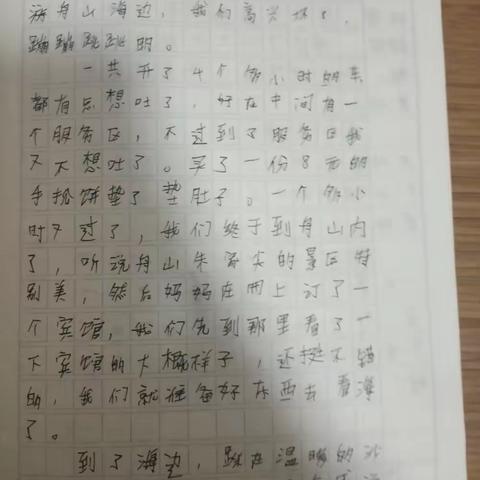 游舟山海边，我们高兴坏了，
蹦蹦跳跳的。
一共开了4个多小时的车
都有点想吐了，好在中间有一
个服务区，不过到了服务区我
又不想吐了。买了一份8元的
手抓饼垫了垫肚子。一个多小
时又过了，我们终于到舟山内
了，听说舟山朱家尖的景区特
别美，然后妈妈在网上订了一
个宾馆，我们先到那里看了一
下宾馆的大概样子，还挺不错
的，我们就准备好东西去看海
了。
到了海边，踩在温暖的沙